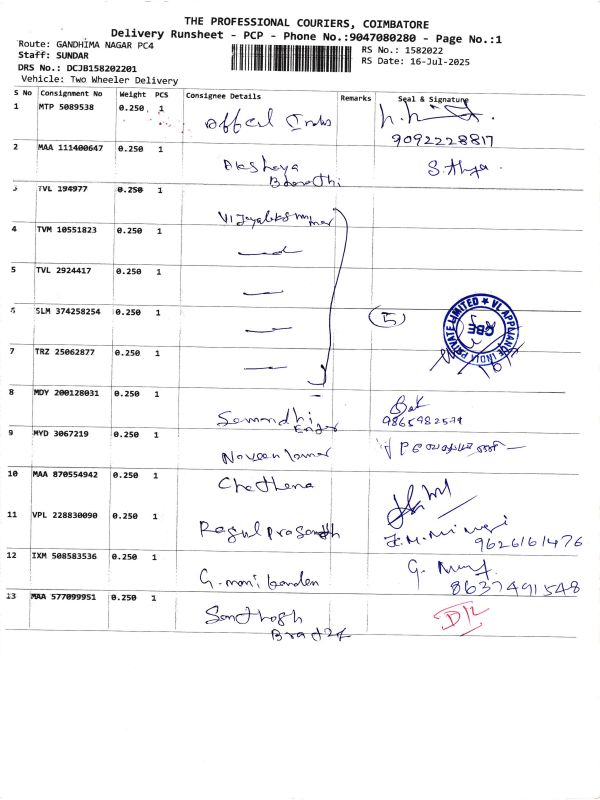 THE PROFESSIONAL COURIERS, COIMBATORE
Delivery Runsheet - PCP - Phone No.:9047080280 - Page No.:1
Route: GANDHIMA NAGAR PC4
Staff: SUNDAR
DRS No.: DCJB158202201
Vehicle: Two Wheeler Delivery
RS No.: 1582022
RS Date: 16-Jul-2025
S No Consignment No Weight PCS Consignee Details Remarks Seal & Signature
1 MTP 5089538 0.250 1
9092228817
2 MAA 111400647 0.250 1 Akshaya
Bharathi
3 TVL 194977 0.250 1 Vijayalakshmi
4 TVM 10551823 0.250 1
5 TVL 2924417 0.250 1
6 SLM 374258254 0.250 1 5 VI APPLIANCE INDIA PRIVATE LIMITED CBE
7 TRZ 25062877 0.250 1
8 MDY 200128031 0.250 1
9865982574
9 MYD 3067219 0.250 1 Naveen kumar
10 MAA 870554942 0.250 1 Chethena
11 VPL 228830090 0.250 1 Ragulprasandh
9626161476
12 IXM 508583536 0.250 1 G. manikandan
8637491548
13 MAA 577099951 0.250 1 Santhosh
D/L